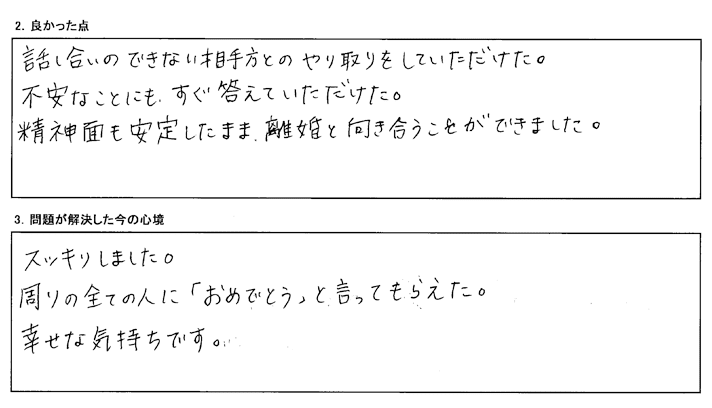 2. 良かった点
話し合いのできない相手方とのやり取りをしていただけた。
不安なことにも、すぐ答えていただけた。
精神面も安定したまま、離婚と向き合うことができました。
3. 問題が解決した今の心境
スッキリしました。
周りの全ての人に「おめでとう」と言ってもらえた。
幸せな気持ちです。